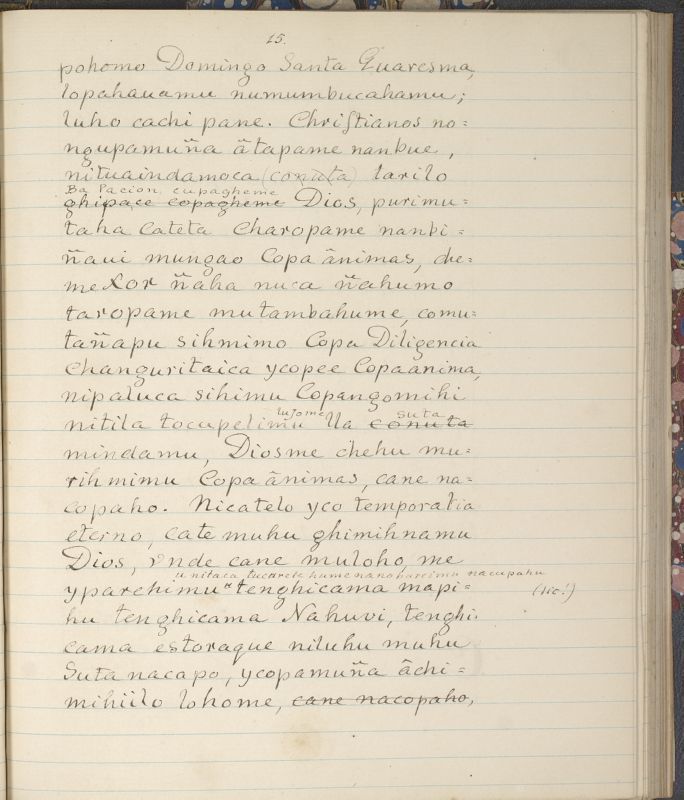 15.
pohomo Domingo Santa Quaresma,
lopahauamu numumbucahamu;
luho cachi pane. Christianos no=
ngupamuña âtapame nanbue,
nituaindamoca (conuta) larilo
Ba Pacion, cupagheme
ghipace copagheme Dios, purimu=
taha Cateta Charopame nanbi=
ñaui mungao Copa ânimas, che=
mexor ñaha nuca ñahumo
taropame mutambahume, comu=
tañapu sihmimo Copa Diligencia
Changuritaica ycopee Copaanima,
nipaluca sihimu Copangomihi
lujome suta
nitila tocupelimu Ua conuta
mindamu, Diosme chehu mu=
rihmimu Copa ânimas, cane na=
copaho. Nicatelo yco temporalia
eterno, cate muhu ghimihnamu
Dios, vnde cane muloho, me
u nitaca tucarete humenanoharcimu nacupahu
yparehimu x tenghicama mapi= (sic!)
hu tenghicama Nahuvi, tenghi=
cama estoraque niluhu muhu
Suta nacapo, ycopamuña âchi=
mihiilo lohome, cane nacopaho,